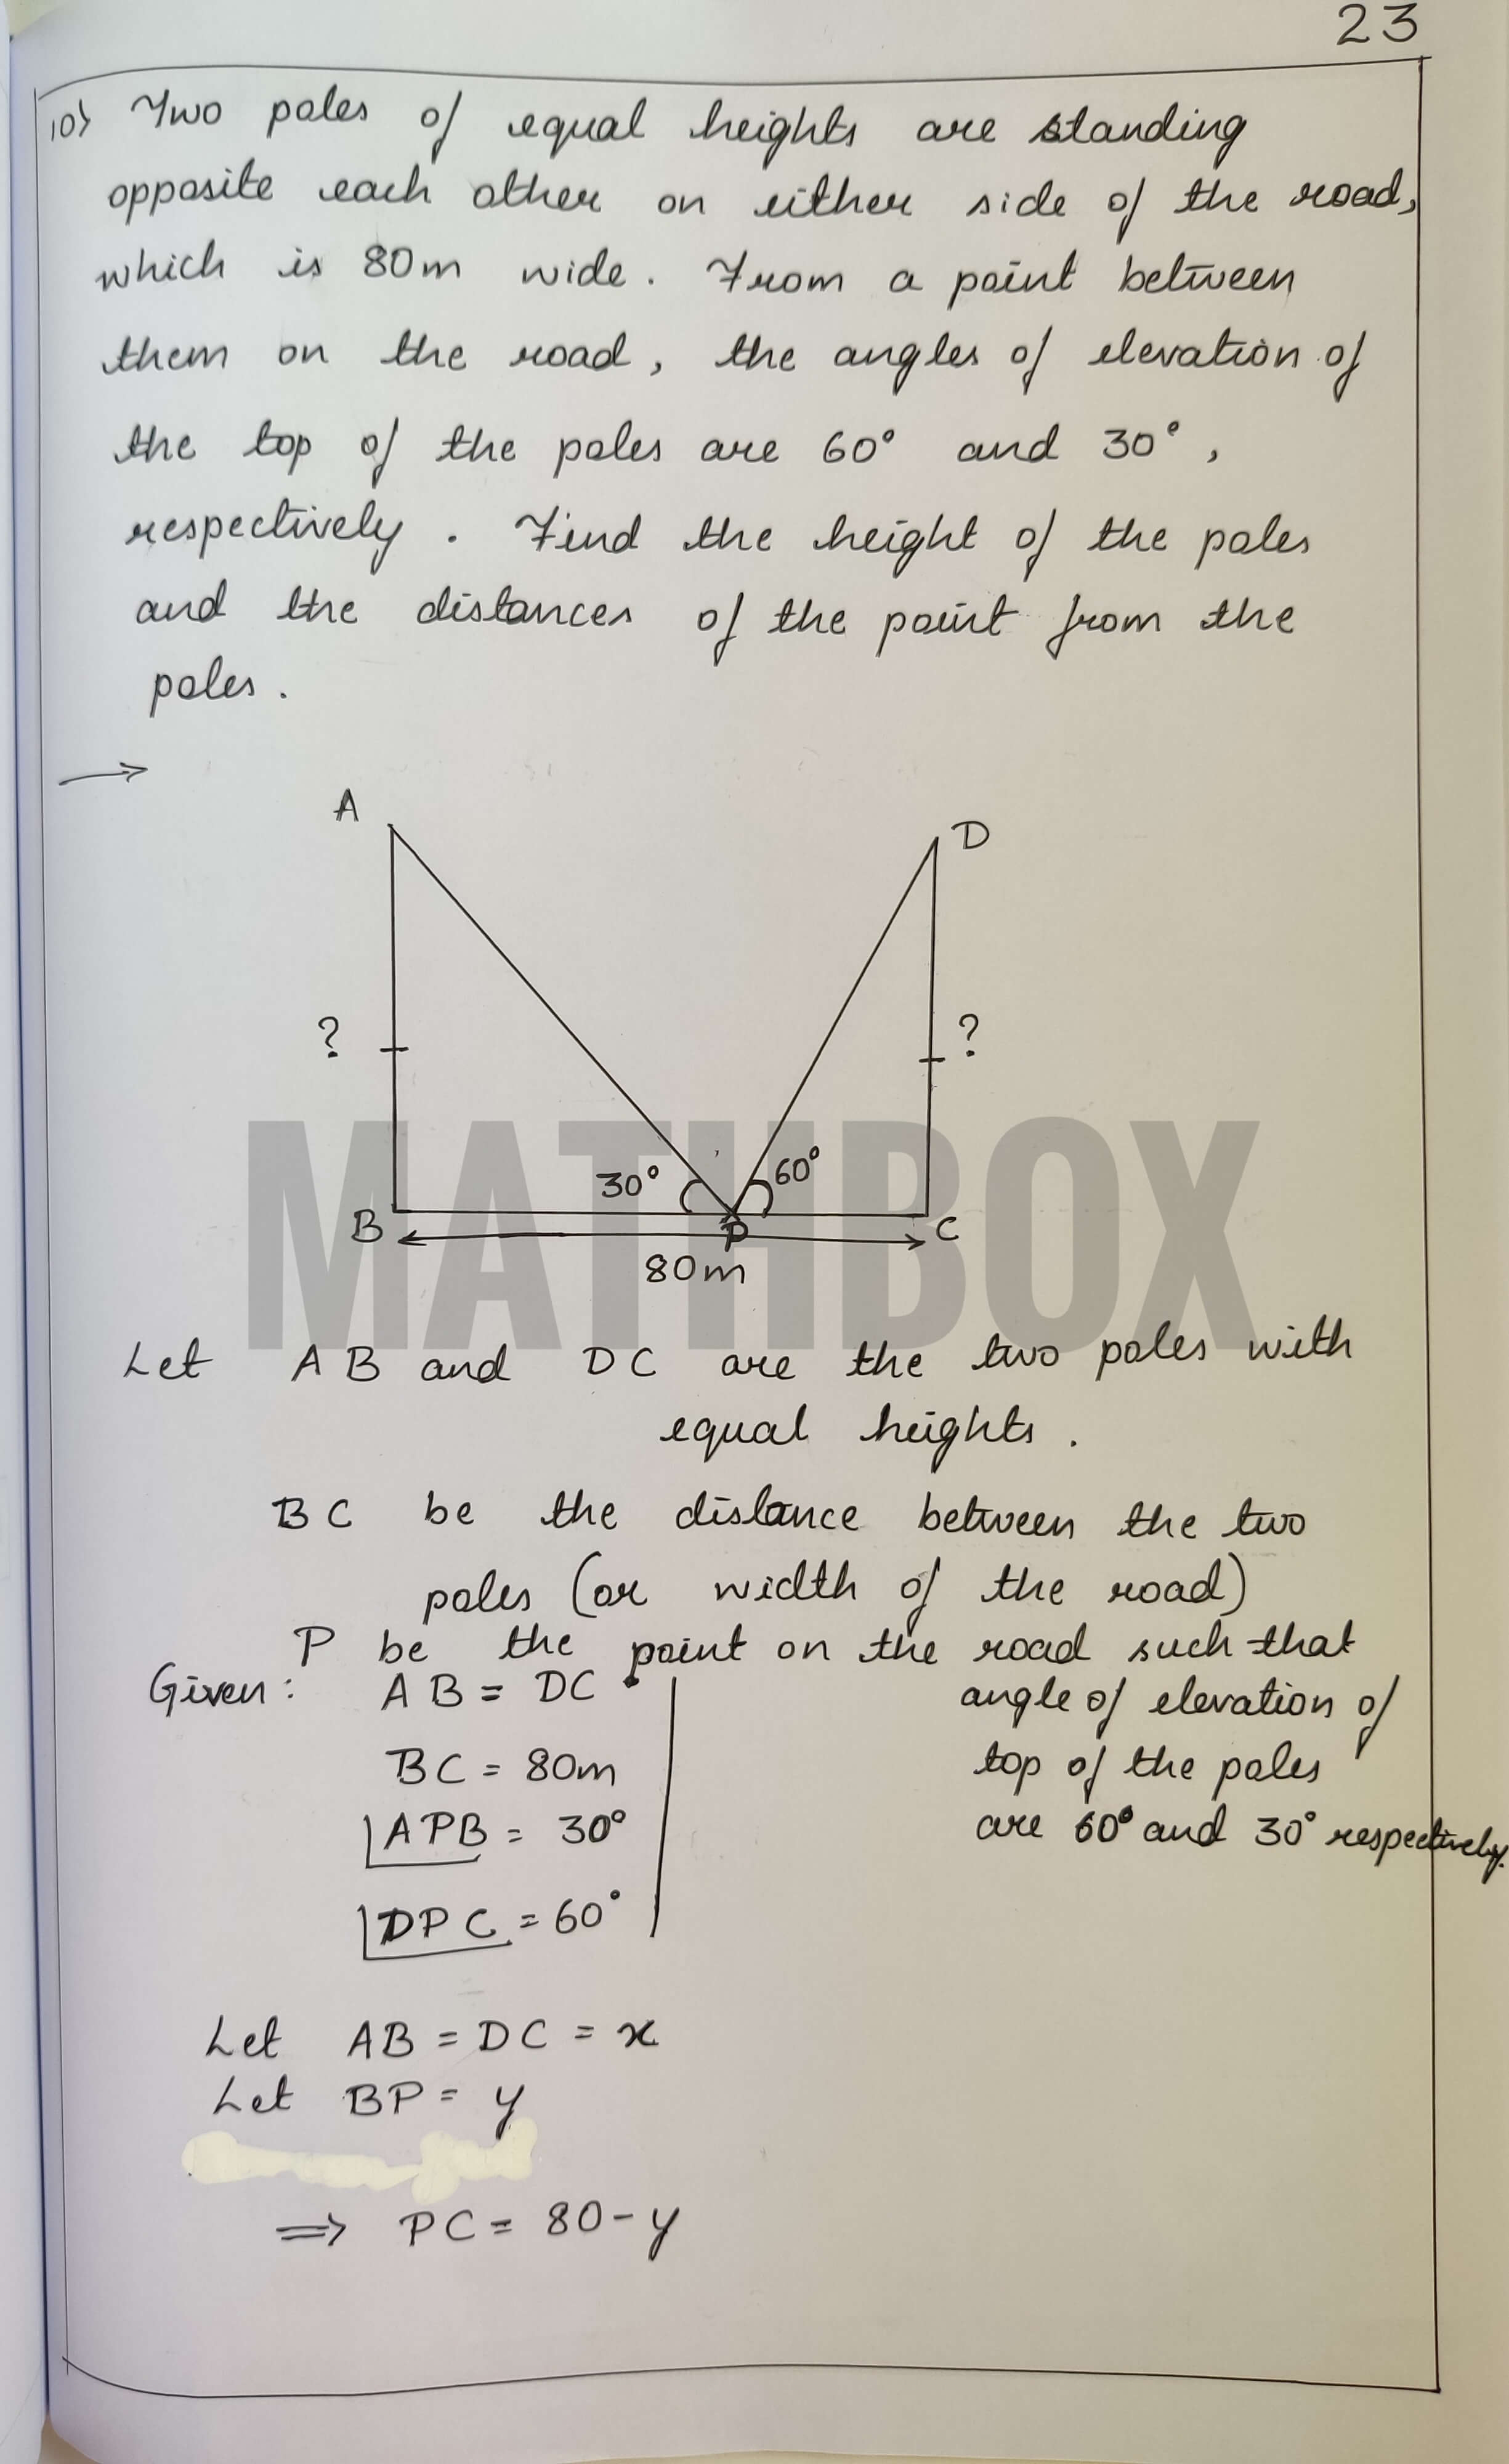 23
10) Two poles of equal heights are standing
opposite each other on either side of the road,
which is 80m wide. From a point between
them on the road, the angles of elevation of
the top of the poles are 60° and 30°,
respectively. Find the height of the poles
and the distances of the point from the
poles.
→
A
D
?
?
30°
60°
B
P
C
80m
MATHBOX
Let AB and DC are the two poles with
equal heights.
BC be the distance between the two
poles (or width of the road)
P be the point on the road such that
angle of elevation of
top of the poles
are 60° and 30° respectively.
Given: AB = DC
BC = 80m
∠APB = 30°
∠DPC = 60°
Let AB = DC = x
Let BP = y
⇒ PC = 80-y